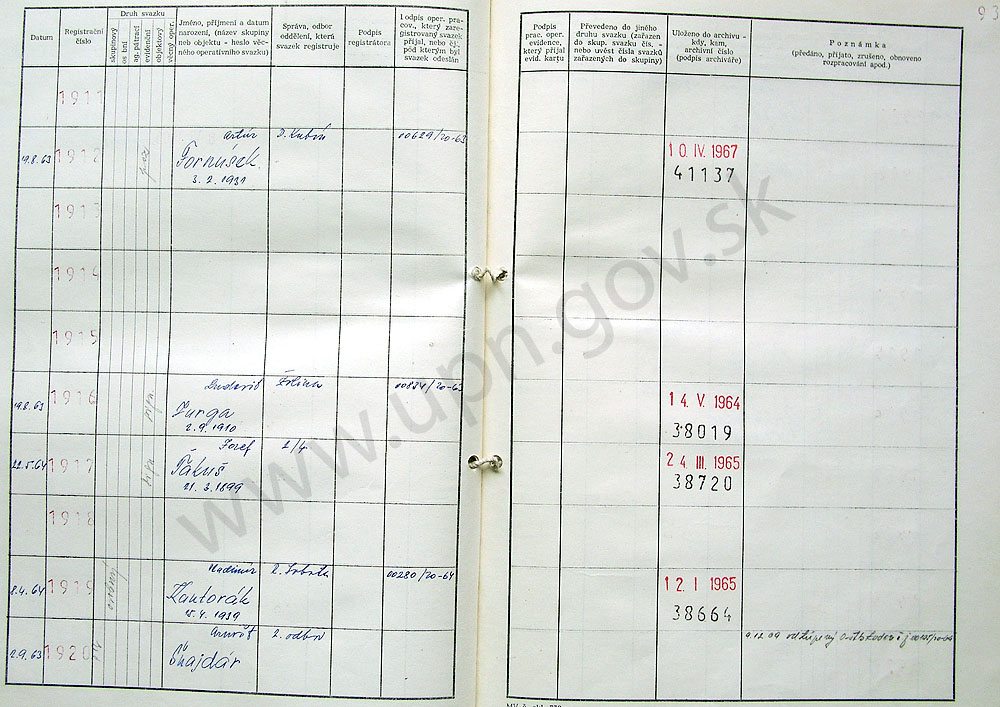 93
Datum
Registrační
číslo
Druh svazku
skupinový
evidenční
objektový
věcný oper.
Jméno, příjmení a datum
narození, (název skupiny
neb objektu - heslo věc-
ného operativního svazku)
Správa, odbor
oddělení, která
svazek registruje
Podpis
registrátora
podpis oper. pra-
cov., který zare-
gistrovaný svazek
přijal, nebo čj.,
pod kterým byl
svazek odeslán
Podpis
prac. oper.
evidence,
který přijal
evid. kartu
Převedeno do jiného
druhu svazku (zařazen
do skup. svazku čís. -
nebo uvést čísla svazků
zařazených do skupiny)
Uloženo do archivu -
kdy, kam,
archivní číslo
(podpis archiváře)
Poznámka
(předáno, přijato, zrušeno, obnoveno
rozpracování apod.)
1911
19.8.63 1912 Artúr 00629/20-63
Fornúsek
3. 2. 1931
10. IV. 1967
41137
1913
1914
1915
19.8.63 1916 Ludevit Žilina 00834/20-63
Zurga
2. 9. 1910
14. V. 1964
38019
22.5.64 1917 Jozef 2/4
Tákuš
21. 3. 1899
24. III. 1965
38720
1918
8.4.64 1919 Vladimír 00280/20-64
Kantorák
15. 4. 1939
12. I 1965
38664
2.9.63 1920 2. odbor
Šnajdár
www.upn.gov.sk